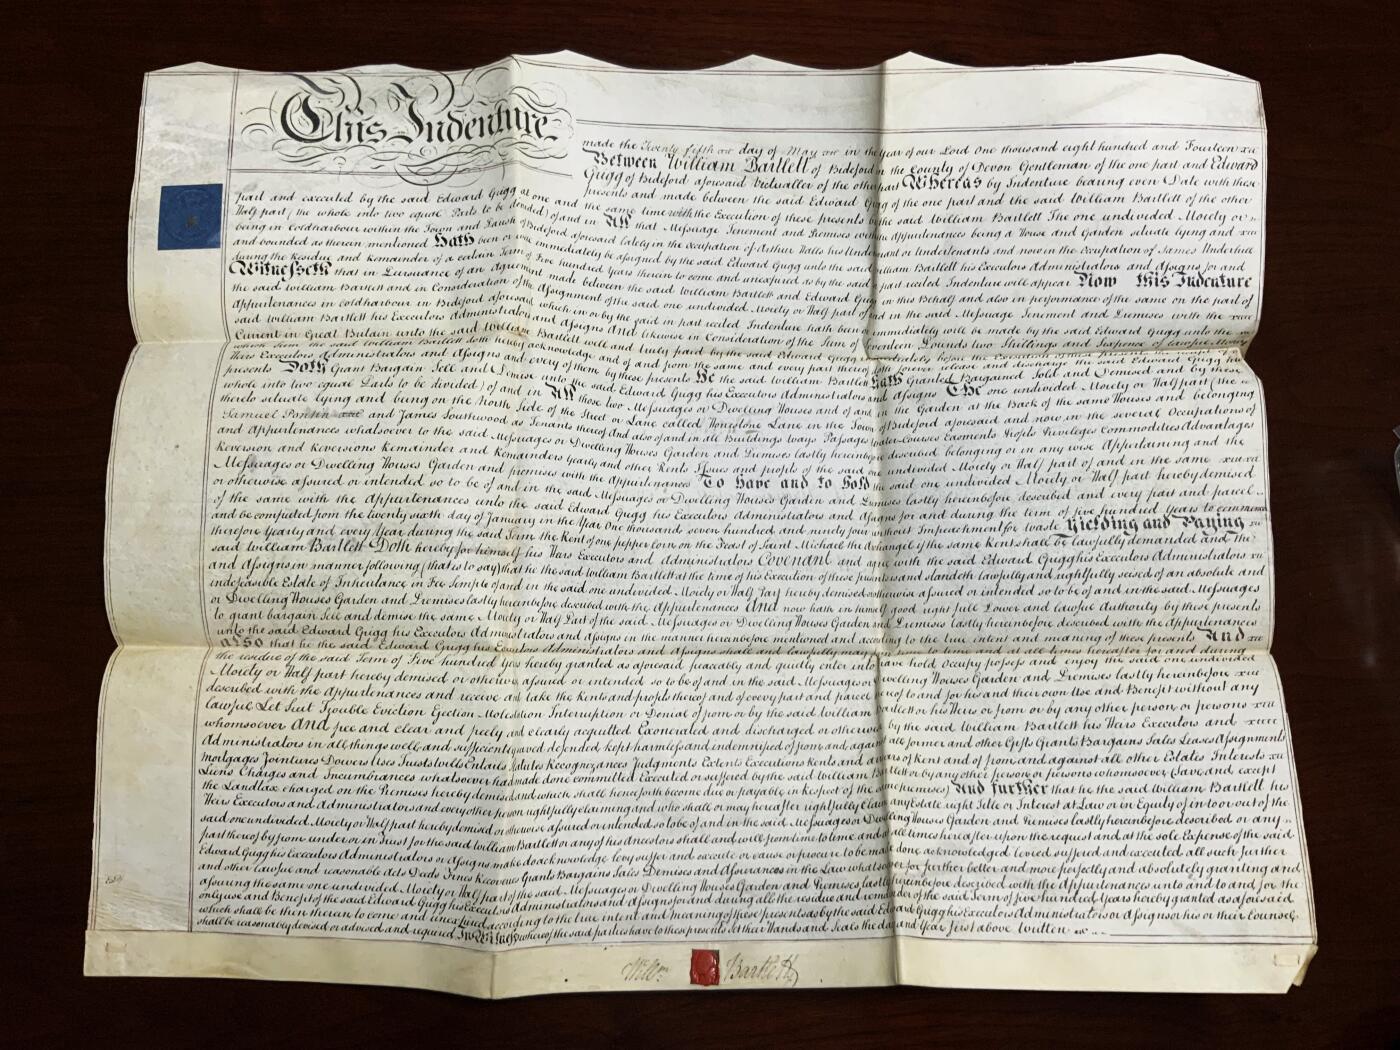 This Indenture
made the Twenty fifth day of May in the Year of our Lord One thousand eight hundred and Fourteen
Between William Bartlett of Bideford in the County of Devon Gentleman of the one part and Edward
Gugg of Bideford aforesaid of the other part Whereas by Indenture bearing even Date with these
presents and made between the said Edward Gugg of the one part and the said William Bartlett of the other
part and executed by the said Edward Gugg at one and the same time with the Execution of these presents by the said William Bartlett The one undivided Moiety or
Half part (the whole into two equal Parts to be divided) of and in All that Messuage Tenement and Premises with the Appurtenances being a House and Garden situate lying and
being in Coldharbour within the Town and Parish of Bideford aforesaid lately in the occupation of Arthur Halls his Undertenant or Undertenants and now in the Occupation of James Underhill
and bounded as therein mentioned Hath been or will immediately be assigned by the said Edward Gugg unto the said William Bartlett his Executors Administrators and Assigns for and
during the Residue and Remainder of a certain Term of Five hundred Years therein to come and unexpired as by the said in part recited Indenture will appear Now this Indenture
Witnesseth that in Pursuance of an Agreement made between the said William Bartlett and Edward Gugg in this Behalf and also in performance of the same on the part of
the said William Bartlett and in Consideration of the Assignment of the said one undivided Moiety or Half part of and in the said Messuage Tenement and Premises with the
Appurtenances in Coldharbour in Bideford aforesaid which in or by the said in part recited Indenture hath been or immediately will be made by the said Edward Gugg unto the
said William Bartlett his Executors Administrators and Assigns And likewise in Consideration of the Sum of Seventeen Pounds two Shillings and Sixpence of lawful Money
Current in Great Britain unto the said William Bartlett well and truly paid by the said Edward Gugg immediately before the Execution of these presents the receipt of
which Sum the said William Bartlett doth hereby acknowledge and of and from the same and every part thereof doth forever release and discharge the said Edward Gugg his
Heirs Executors Administrators and Assigns and every of them by these presents He the said William Bartlett Hath Granted Bargained Sold and Demised and by these
presents Doth Grant Bargain Sell and Demise unto the said Edward Gugg his Executors Administrators and Assigns The one undivided Moiety or Half part (the
whole into two equal Parts to be divided) of and in All those two Messuages or Dwelling Houses and of and in the Garden at the Back of the same Houses and belonging
thereto situate lying and being on the North Side of the Street or Lane called Honestone Lane in the Town of Bideford aforesaid and now in the several Occupations of
Samuel and James Southwood as Tenants thereof And also of and in all Buildings Ways Passages Water Courses Easments Profits Privileges Commodities Advantages
and Appurtenances whatsoever to the said Messuages or Dwelling Houses Garden and Premises lastly hereinbefore described belonging or in any wise Appertaining and the
Reversion and Reversions Remainder and Remainders Yearly and other Rents Issues and profits of the said one undivided Moiety or Half part of and in the same
Messuages or Dwelling Houses Garden and premises with the Appurtenances To Have and to Hold the said one undivided Moiety or Half part hereby demised
or otherwise assured or intended so to be of and in the said Messuages or Dwelling Houses Garden and Premises lastly hereinbefore described and every part and parcel
of the same with the Appurtenances unto the said Edward Gugg his Executors Administrators and Assigns for and during the term of five hundred Years to commence
and be computed from the twenty sixth day of January in the Year One thousand seven hundred and ninety four without Impeachment for Waste Yielding and Paying
therefore Yearly and every Year during the said Term the Rent of one pepper Corn on the Feast of Saint Michael the Archangel if the same Rent shall be lawfully demanded and the
said William Bartlett Doth hereby for himself his Heirs Executors and Administrators Covenant and agree with the said Edward Gugg his Executors Administrators
and Assigns in manner following (that is to say) that he the said William Bartlett at the time of his Execution of these presents is and standeth lawfully and rightfully seised of an absolute and
indefeasible Estate of Inheritance in Fee Simple of and in the said one undivided Moiety or Half Part hereby demised or otherwise assured or intended so to be of and in the said Messuages
or Dwelling Houses Garden and Premises lastly hereinbefore described with the Appurtenances And now hath in himself good right full Power and lawful Authority by these presents
to grant bargain Sell and demise the same Moiety or Half Part of the said Messuages or Dwelling Houses Garden and Premises lastly hereinbefore described with the Appurtenances
unto the said Edward Gugg his Executors Administrators and Assigns in the manner hereinbefore mentioned and according to the true intent and meaning of these presents And
also that he the said Edward Gugg his Executors Administrators and Assigns shall and lawfully may from time to time and at all times hereafter for and during
the residue of the said Term of Five hundred Years hereby granted as aforesaid peaceably and quietly enter into have hold Occupy possess and enjoy the said one undivided
Moiety or Half part hereby demised or otherwise assured or intended so to be of and in the said Messuages or Dwelling Houses Garden and Premises lastly hereinbefore
described with the Appurtenances and receive and take the Rents and profits thereof and of every part and parcel thereof to and for his and their own Use and Benefit without any
lawful Let Suit Trouble Eviction Ejection Molestation Interruption or Denial of from or by the said William Bartlett or his Heirs or from or by any other person or persons
whomsoever And free and clear and freely and clearly acquitted Exonerated and discharged or otherwise by the said William Bartlett his Heirs Executors and
Administrators in all things well and sufficiently saved defended kept harmless and indemnified of from and against all former and other Gifts Grants Bargains Sales Leases Assignments
Mortgages Jointures Dowers Uses Trusts Wills Entails Statutes Recognizances Judgments Extents Executions Rents and arrears of Rent and of from and against all other Estates Interests
Liens Charges and Incumbrances whatsoever had made done committed Executed or suffered by the said William Bartlett or by any other person or persons whomsoever (save and except
the Landtax charged on the Premises hereby demised and which shall henceforth become due or payable in respect of the same premises) And further that he the said William Bartlett his
Heirs Executors and Administrators and every other person rightfully claiming and who shall or may hereafter rightfully claim any Estate right Title or Interest at Law or in Equity of in to or out of the
said one undivided Moiety or Half part hereby demised or otherwise assured or intended so to be of and in the said Messuages or Dwelling Houses Garden and Premises lastly hereinbefore described or any
part thereof by from under or in Trust for the said William Bartlett or any of his Ancestors shall and will from time to time and at all times hereafter upon the request and at the sole Expense of the said
Edward Gugg his Executors Administrators or Assigns make do acknowledge levy suffer and execute or cause or procure to be made done acknowledged levied suffered and executed all such further
and other lawful and reasonable Acts Deeds Fines Recoveries Grants Bargains Sales Demises and Assurances in the Law whatsoever for further better and more perfectly and absolutely granting and
assuring the same one undivided Moiety or Half part of the said Messuages or Dwelling Houses Garden and Premises lastly hereinbefore described with the Appurtenances unto and to and for the
only use and Benefit of the said Edward Gugg his Executors Administrators and Assigns for and during all the residue and remainder of the said Term of five hundred Years hereby granted as aforesaid
which shall be then therein to come and unexpired according to the true intent and meaning of these presents as by the said Edward Gugg his Executors Administrators or Assigns or his or their Counsel
shall be reasonably devised or advised and required In Witness whereof the said parties have to these presents set their Hands and Seals the day and Year first above Written
Willm Bartlett